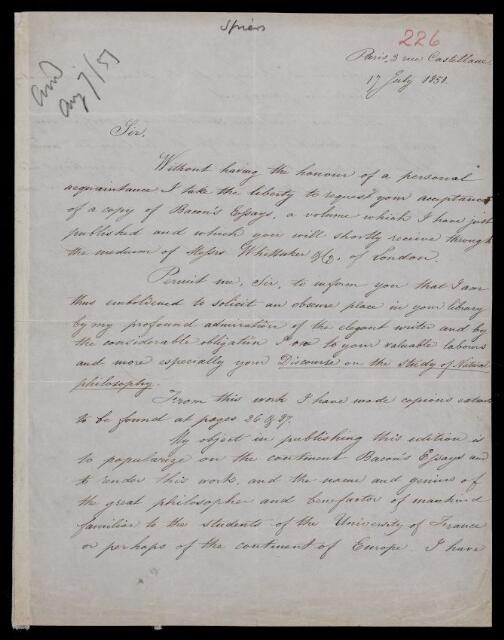 Spiers
226
Paris, 3 rue Castellane
17 July 1851.
Aug 7/51
Sir,
Without having the honour of a personal
acquaintance I take the liberty to request your acceptance
of a copy of Bacon's Essays, a volume which I have just
published and which you will shortly receive through
the medium of Messrs Whittaker & Co, of London.
Permit me, Sir, to inform you that I am
thus emboldened to solicit an obscure place in your library
by my profound admiration of the elegant writer and by
the considerable obligation I owe to your valuable labours
and more especially your Discourse on the Study of Natural
philosophy.
From this work I have made copious extracts
to be found at pages 26 & 27.
My object in publishing this edition is
to popularize on the continent Bacon's Essays and
to render this work, and the name and genius of
the great philosopher and benefactor of mankind
familiar to the students of the University of France
or perhaps of the continent of Europe. I have